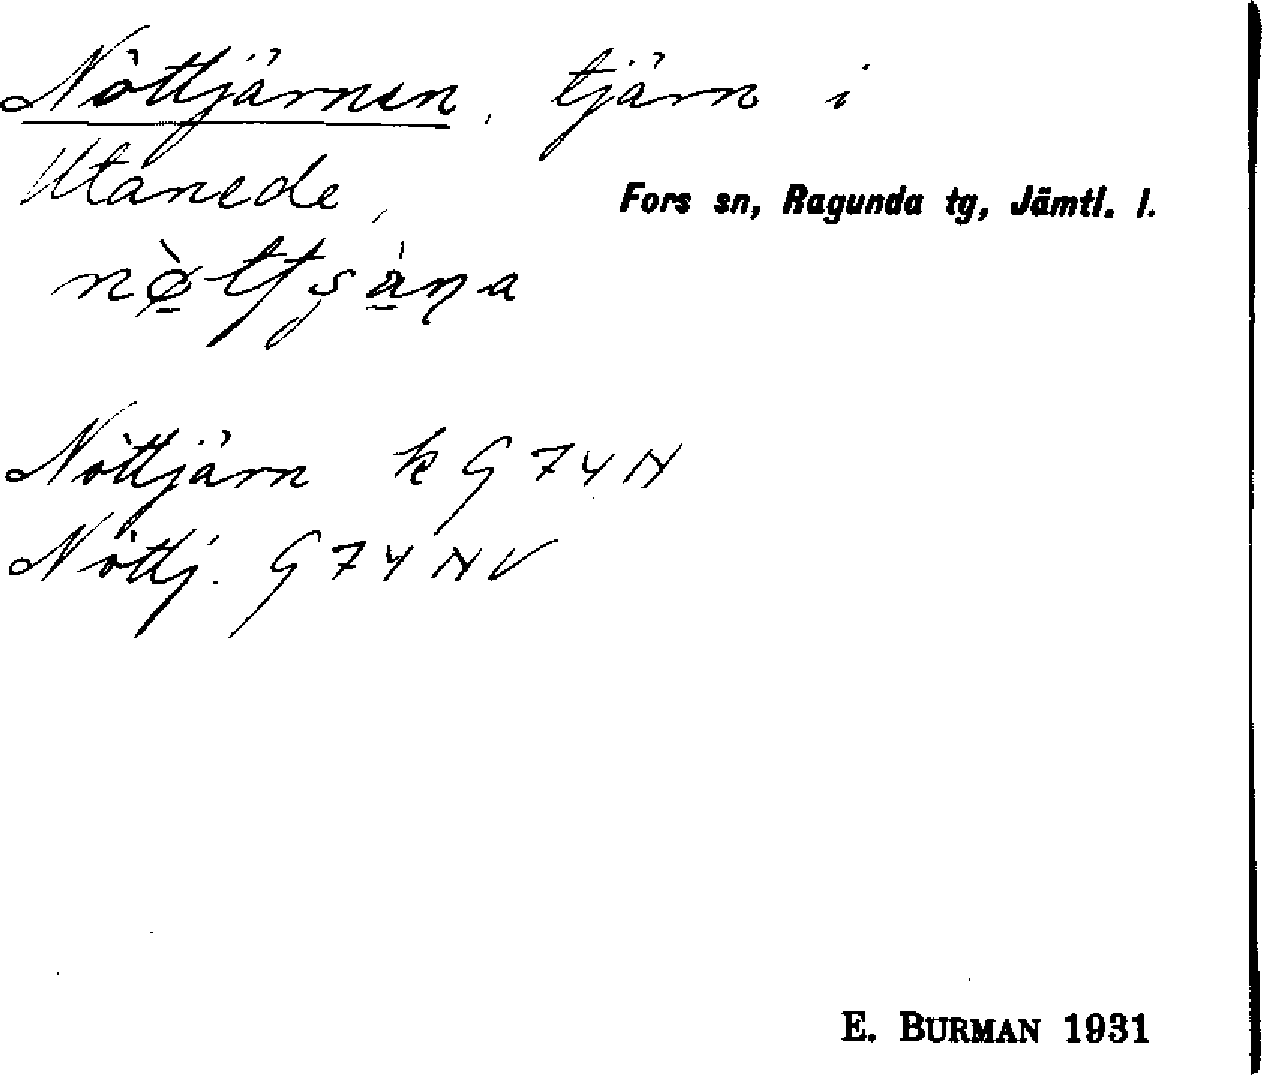 Nöttjärnen, tjärn i
Utanede,
Fors sn, Ragunda tg, Jämtl. l.
Nöttjärn k G 74 N
Nöttj. G 74 NV
E. BURMAN 1931